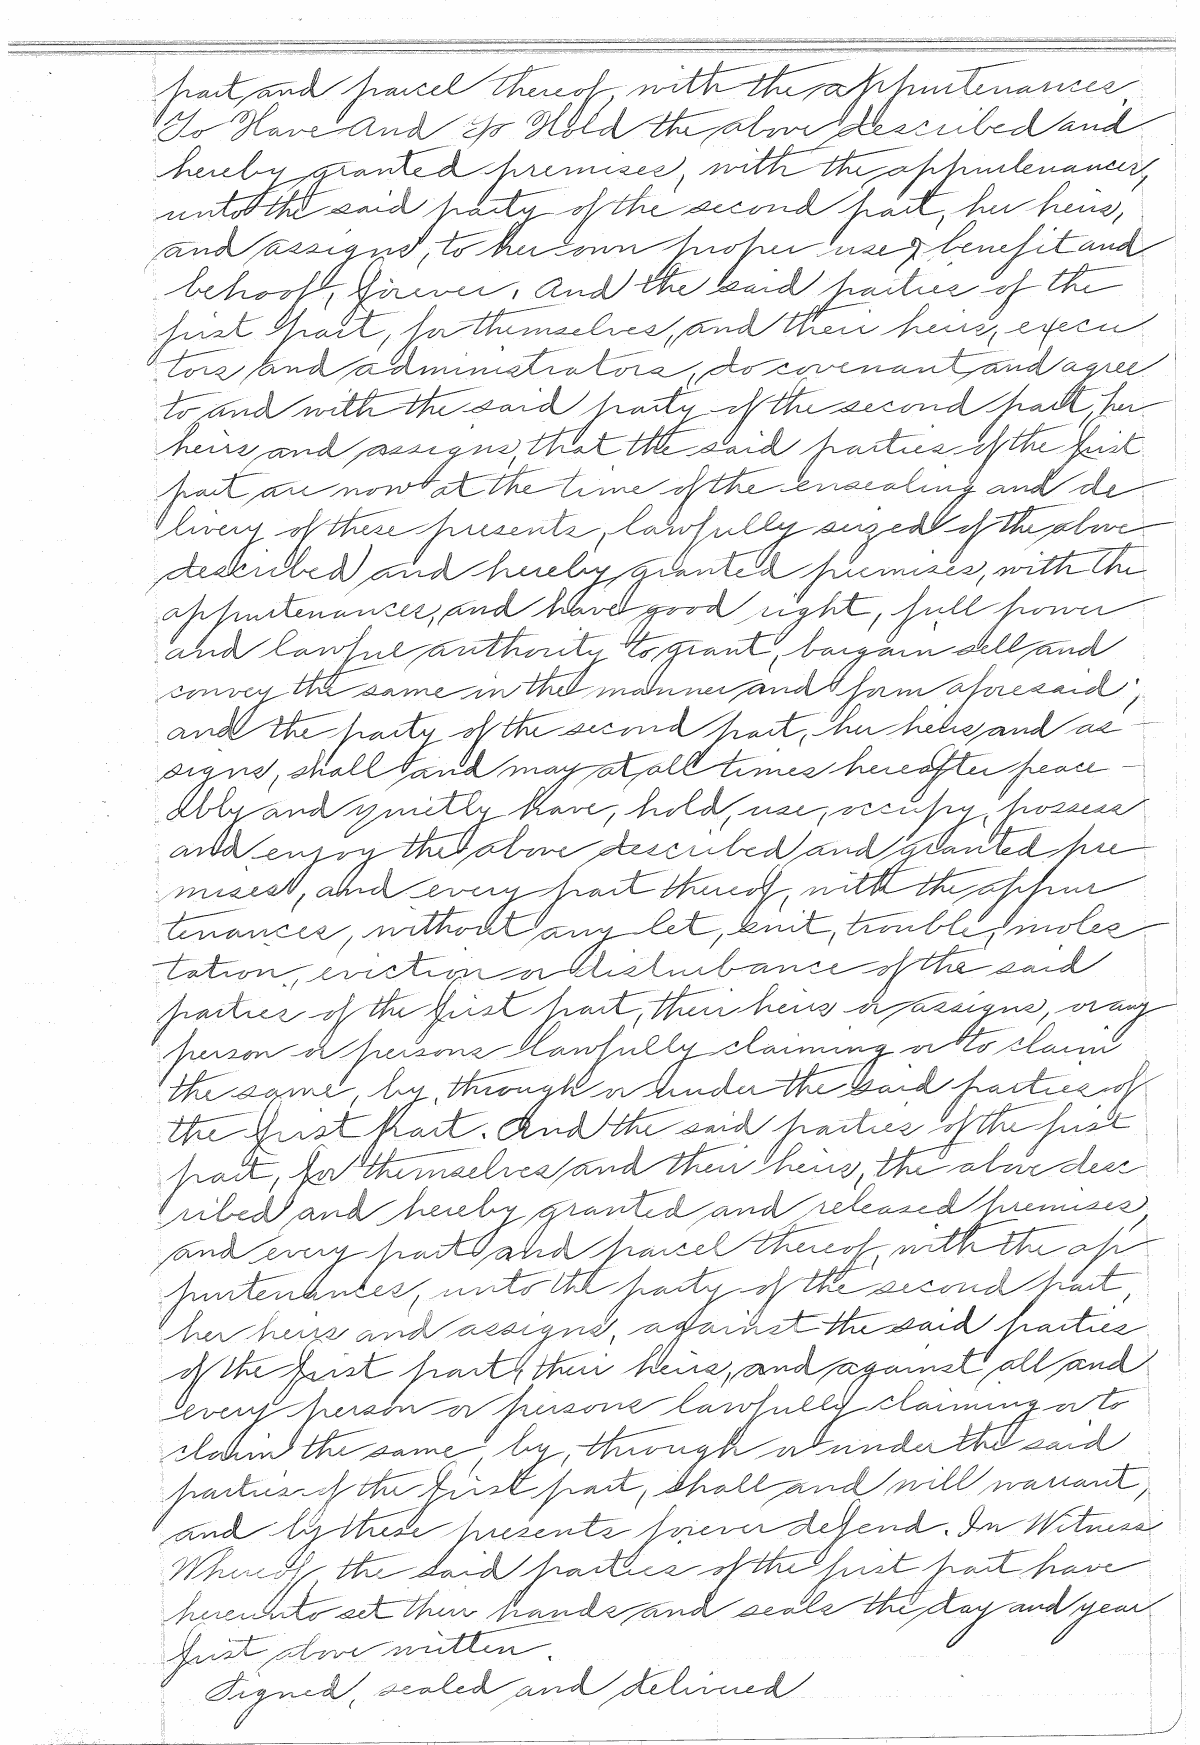 part and parcel thereof, with the appurtenances.
To Have And To Hold the above described and
hereby granted premises, with the appurtenances,
unto the said party of the second part, her heirs,
and assigns, to her own proper use & benefit and
behoof, forever. And the said parties of the
first part, for themselves, and their heirs, execu
tors and administrators, do covenant and agree
to and with the said party of the second part, her
heirs and assigns, that the said parties of the first
part are now at the time of the ensealing and de
livery of these presents, lawfully seized of the above
described and hereby granted premises, with the
appurtenances, and have good right, full power
and lawful authority to grant, bargain sell and
convey the same in the manner and form aforesaid;
and the party of the second part, her heirs and as
signs, shall and may at all times hereafter peace
ably and quietly have, hold, use, occupy, possess
and enjoy the above described and granted pre
mises, and every part thereof, with the appur
tenances, without any let, suit, trouble, moles
tation, eviction or disturbance of the said
parties of the first part, their heirs or assigns, or any
person or persons lawfully claiming or to claim
the same, by, through or under the said parties of
the first part. And the said parties of the first
part, for themselves and their heirs, the above desc
ribed and hereby granted and released premises,
and every part and parcel thereof, with the ap
purtenances, unto the party of the second part,
her heirs and assigns, against the said parties
of the first part, their heirs, and against all and
every person or persons lawfully claiming or to
claim the same, by, through or under the said
parties of the first part, shall and will warrant,
and by these presents forever defend. In Witness
Whereof, the said parties of the first part have
hereunto set their hands and seals the day and year
first above written.
Signed, sealed and delivered